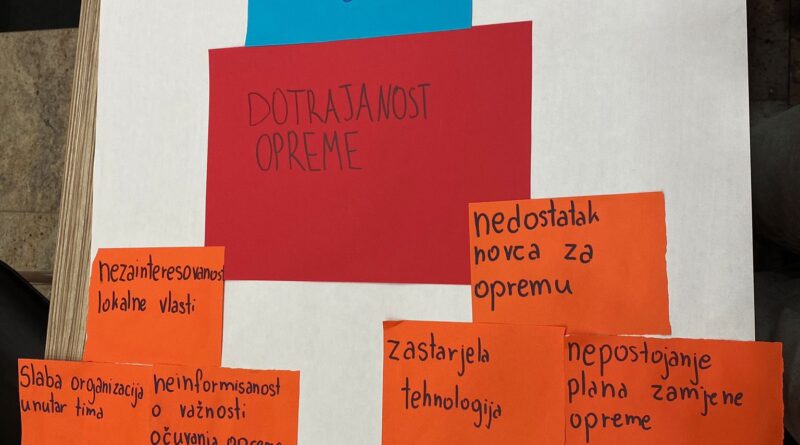 DOTRAJANOST
OPREME
nedostatak
novca za
opremu
nezainteresovanost
lokalne vlasti
zastarjela
tehnologija
nepostojanje
plana zamjene
opreme
slaba organizacija
unutar tima
neinformisanost
o važnosti
očuvanja opreme